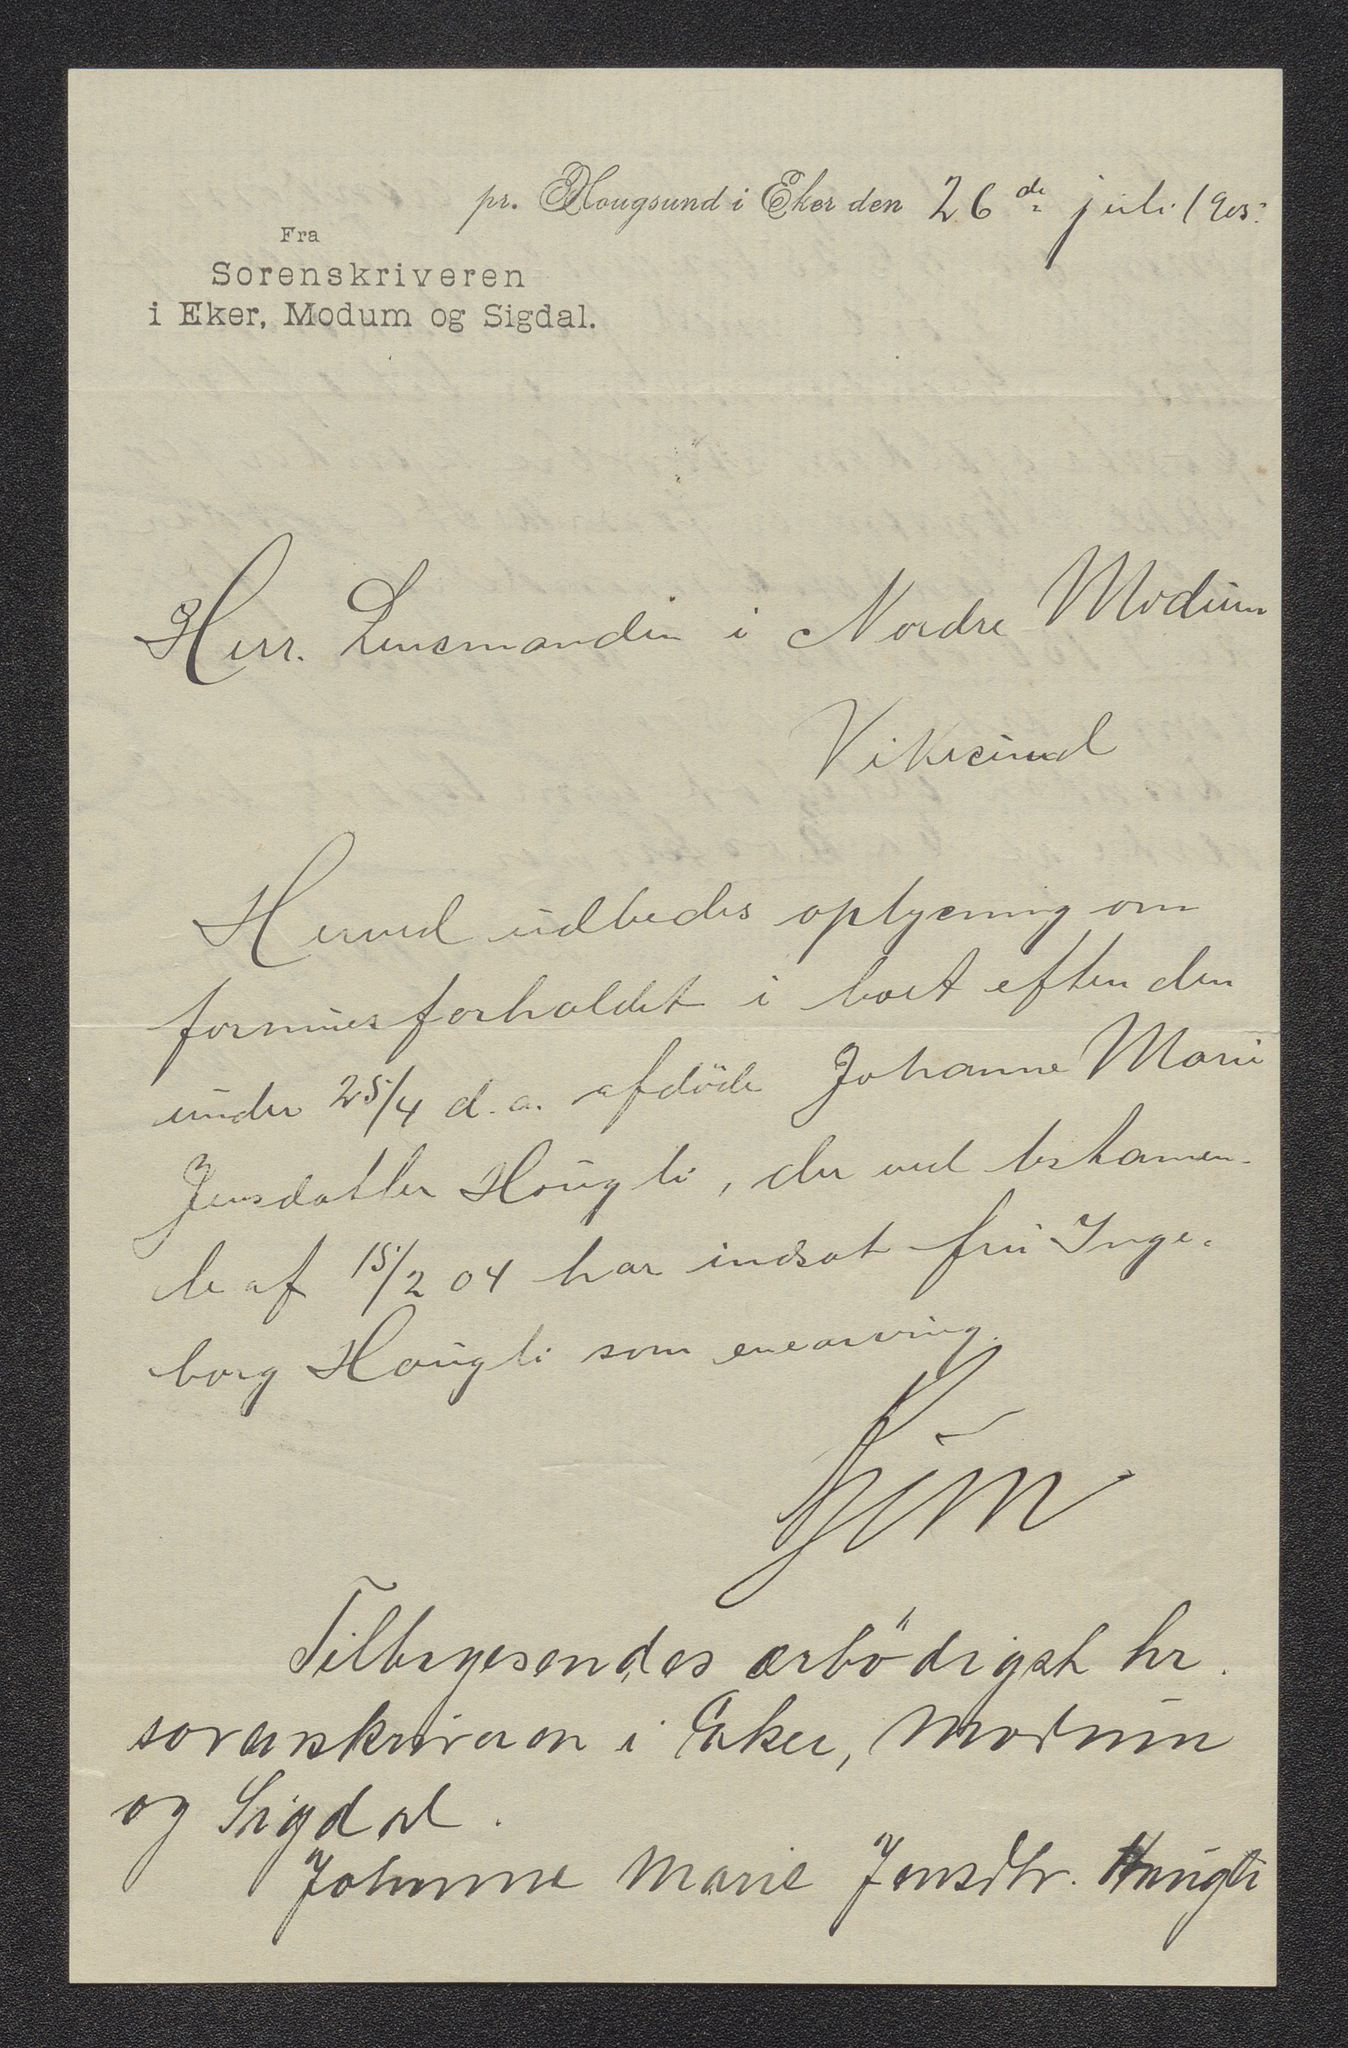 pr. Hougsund i Eker den 26de juli 1905.
Fra
Sorenskriveren
i Eker, Modum og Sigdal.
Herr. Lensmanden i Nordre Modum
Vikersund
Herved udbedes oplysning om
formuesforholdet i boet efter den
under 25/4 d. a. afdöde Johanne Marie
Jensdatter Hougli, der ved testamen-
te af 15/2 04 har indsat fru Inge-
borg Hougli som enearving.
Tilbagesendes ærbödigst hr.
sorenskriveren i Eker, Modum
og Sigdal.
Johanne Marie Jensdtr. Hougli